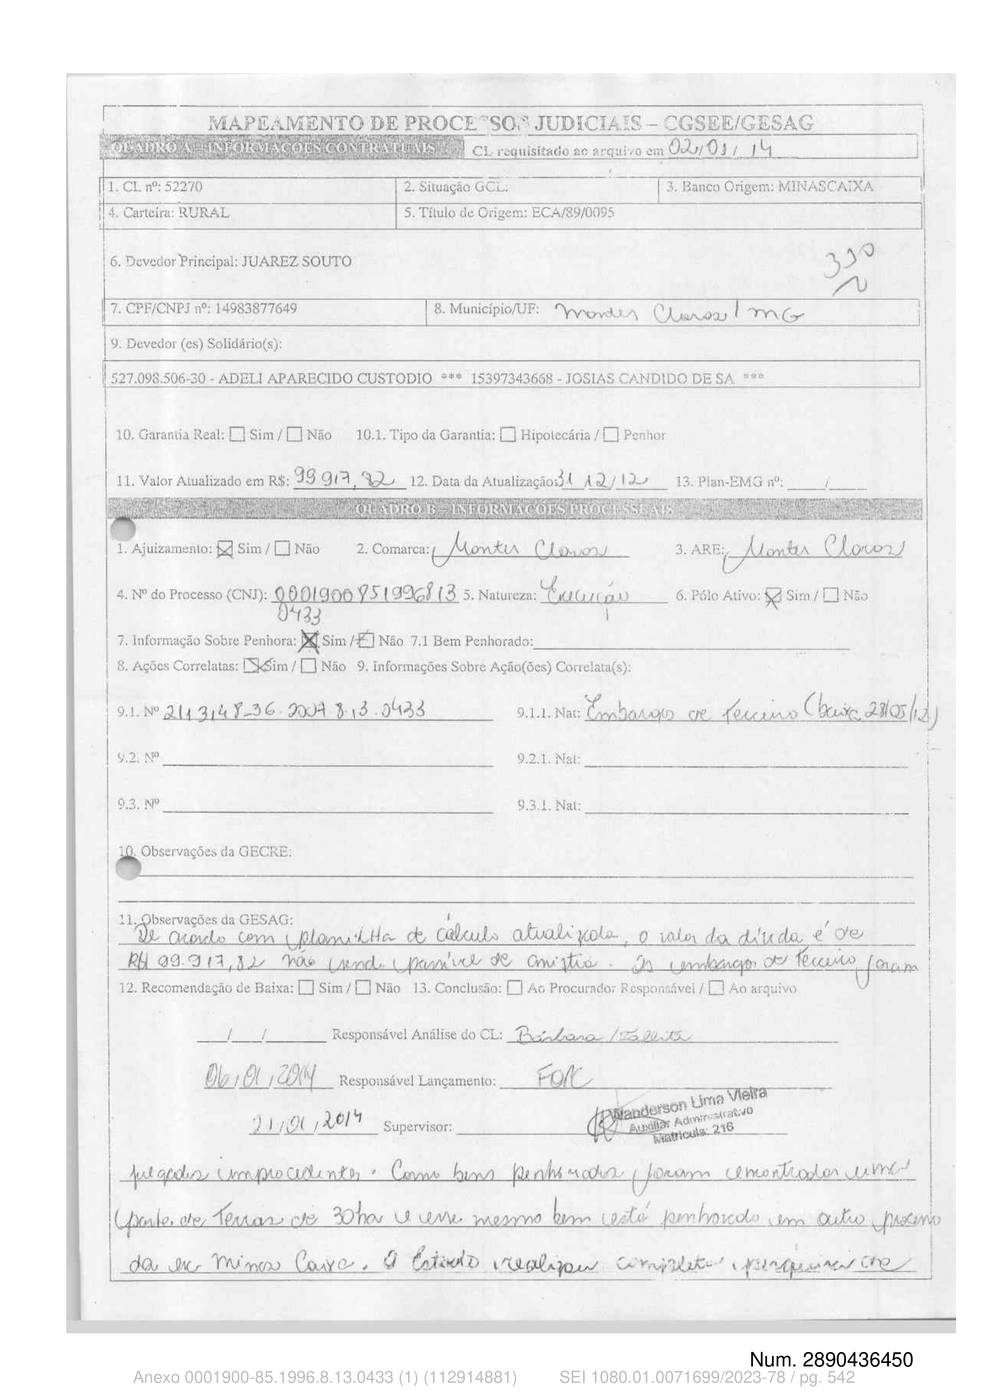 MAPEAMENTO DE PROCESSOS JUDICIAIS – CGSEE/GESAG
QUADRO A – INFORMAÇÕES CONTRATUAIS CL requisitado ao arquivo em 02/01/14
1. CL nº: 52270 2. Situação GCL: 3. Banco Origem: MINASCAIXA
4. Carteira: RURAL 5. Título de Origem: ECA/89/0095
6. Devedor Principal: JUAREZ SOUTO
330
7. CPF/CNPJ nº: 14983877649 8. Município/UF: Montes Claros / MG
9. Devedor (es) Solidário(s):
527.098.506-30 - ADELI APARECIDO CUSTODIO *** 15397343668 - JOSIAS CANDIDO DE SA ***
10. Garantia Real: Sim / Não 10.1. Tipo da Garantia: Hipotecária / Penhor
11. Valor Atualizado em R$: 99 917,82 12. Data da Atualização: 31/12/12 13. Plan-EMG nº: /
QUADRO B – INFORMAÇÕES PROCESSUAIS
1. Ajuizamento: Sim / Não 2. Comarca: Montes Claros 3. ARE: Montes Claros
4. Nº do Processo (CNJ): 0001900851996813 5. Natureza: Execução 6. Pólo Ativo: Sim / Não
0433
7. Informação Sobre Penhora: Sim / Não 7.1 Bem Penhorado:
8. Ações Correlatas: Sim / Não 9. Informações Sobre Ação(ões) Correlata(s):
9.1. Nº 2113148-36.2007.8.13.0433 9.1.1. Nat: Embargos de Terceiro (baixa 28/05/12)
9.2. Nº 9.2.1. Nat:
9.3. Nº 9.3.1. Nat:
10. Observações da GECRE:
11. Observações da GESAG:
De acordo com planilha de cálculo atualizada, o valor da dívida é de
R$ 99.917,82 não sendo passível de anistia. Os embargos de Terceiro foram
12. Recomendação de Baixa: Sim / Não 13. Conclusão: Ao Procurador Responsável / Ao arquivo
/ / Responsável Análise do CL: Bárbara /
06/01/2014 Responsável Lançamento:
21/01/2014 Supervisor:
Wanderson Lima Vieira
Auxiliar Administrativo
Matrícula: 216
julgados improcedentes. Como bens penhorados foram encontrados uma
parte de Terras de 30ha e esse mesmo bem está penhorado em outro processo
da ex Minas Caixa. O Estado realizou completa pesquisa de
Num. 2890436450
Anexo 0001900-85.1996.8.13.0433 (1) (112914881) SEI 1080.01.0071699/2023-78 / pg. 542